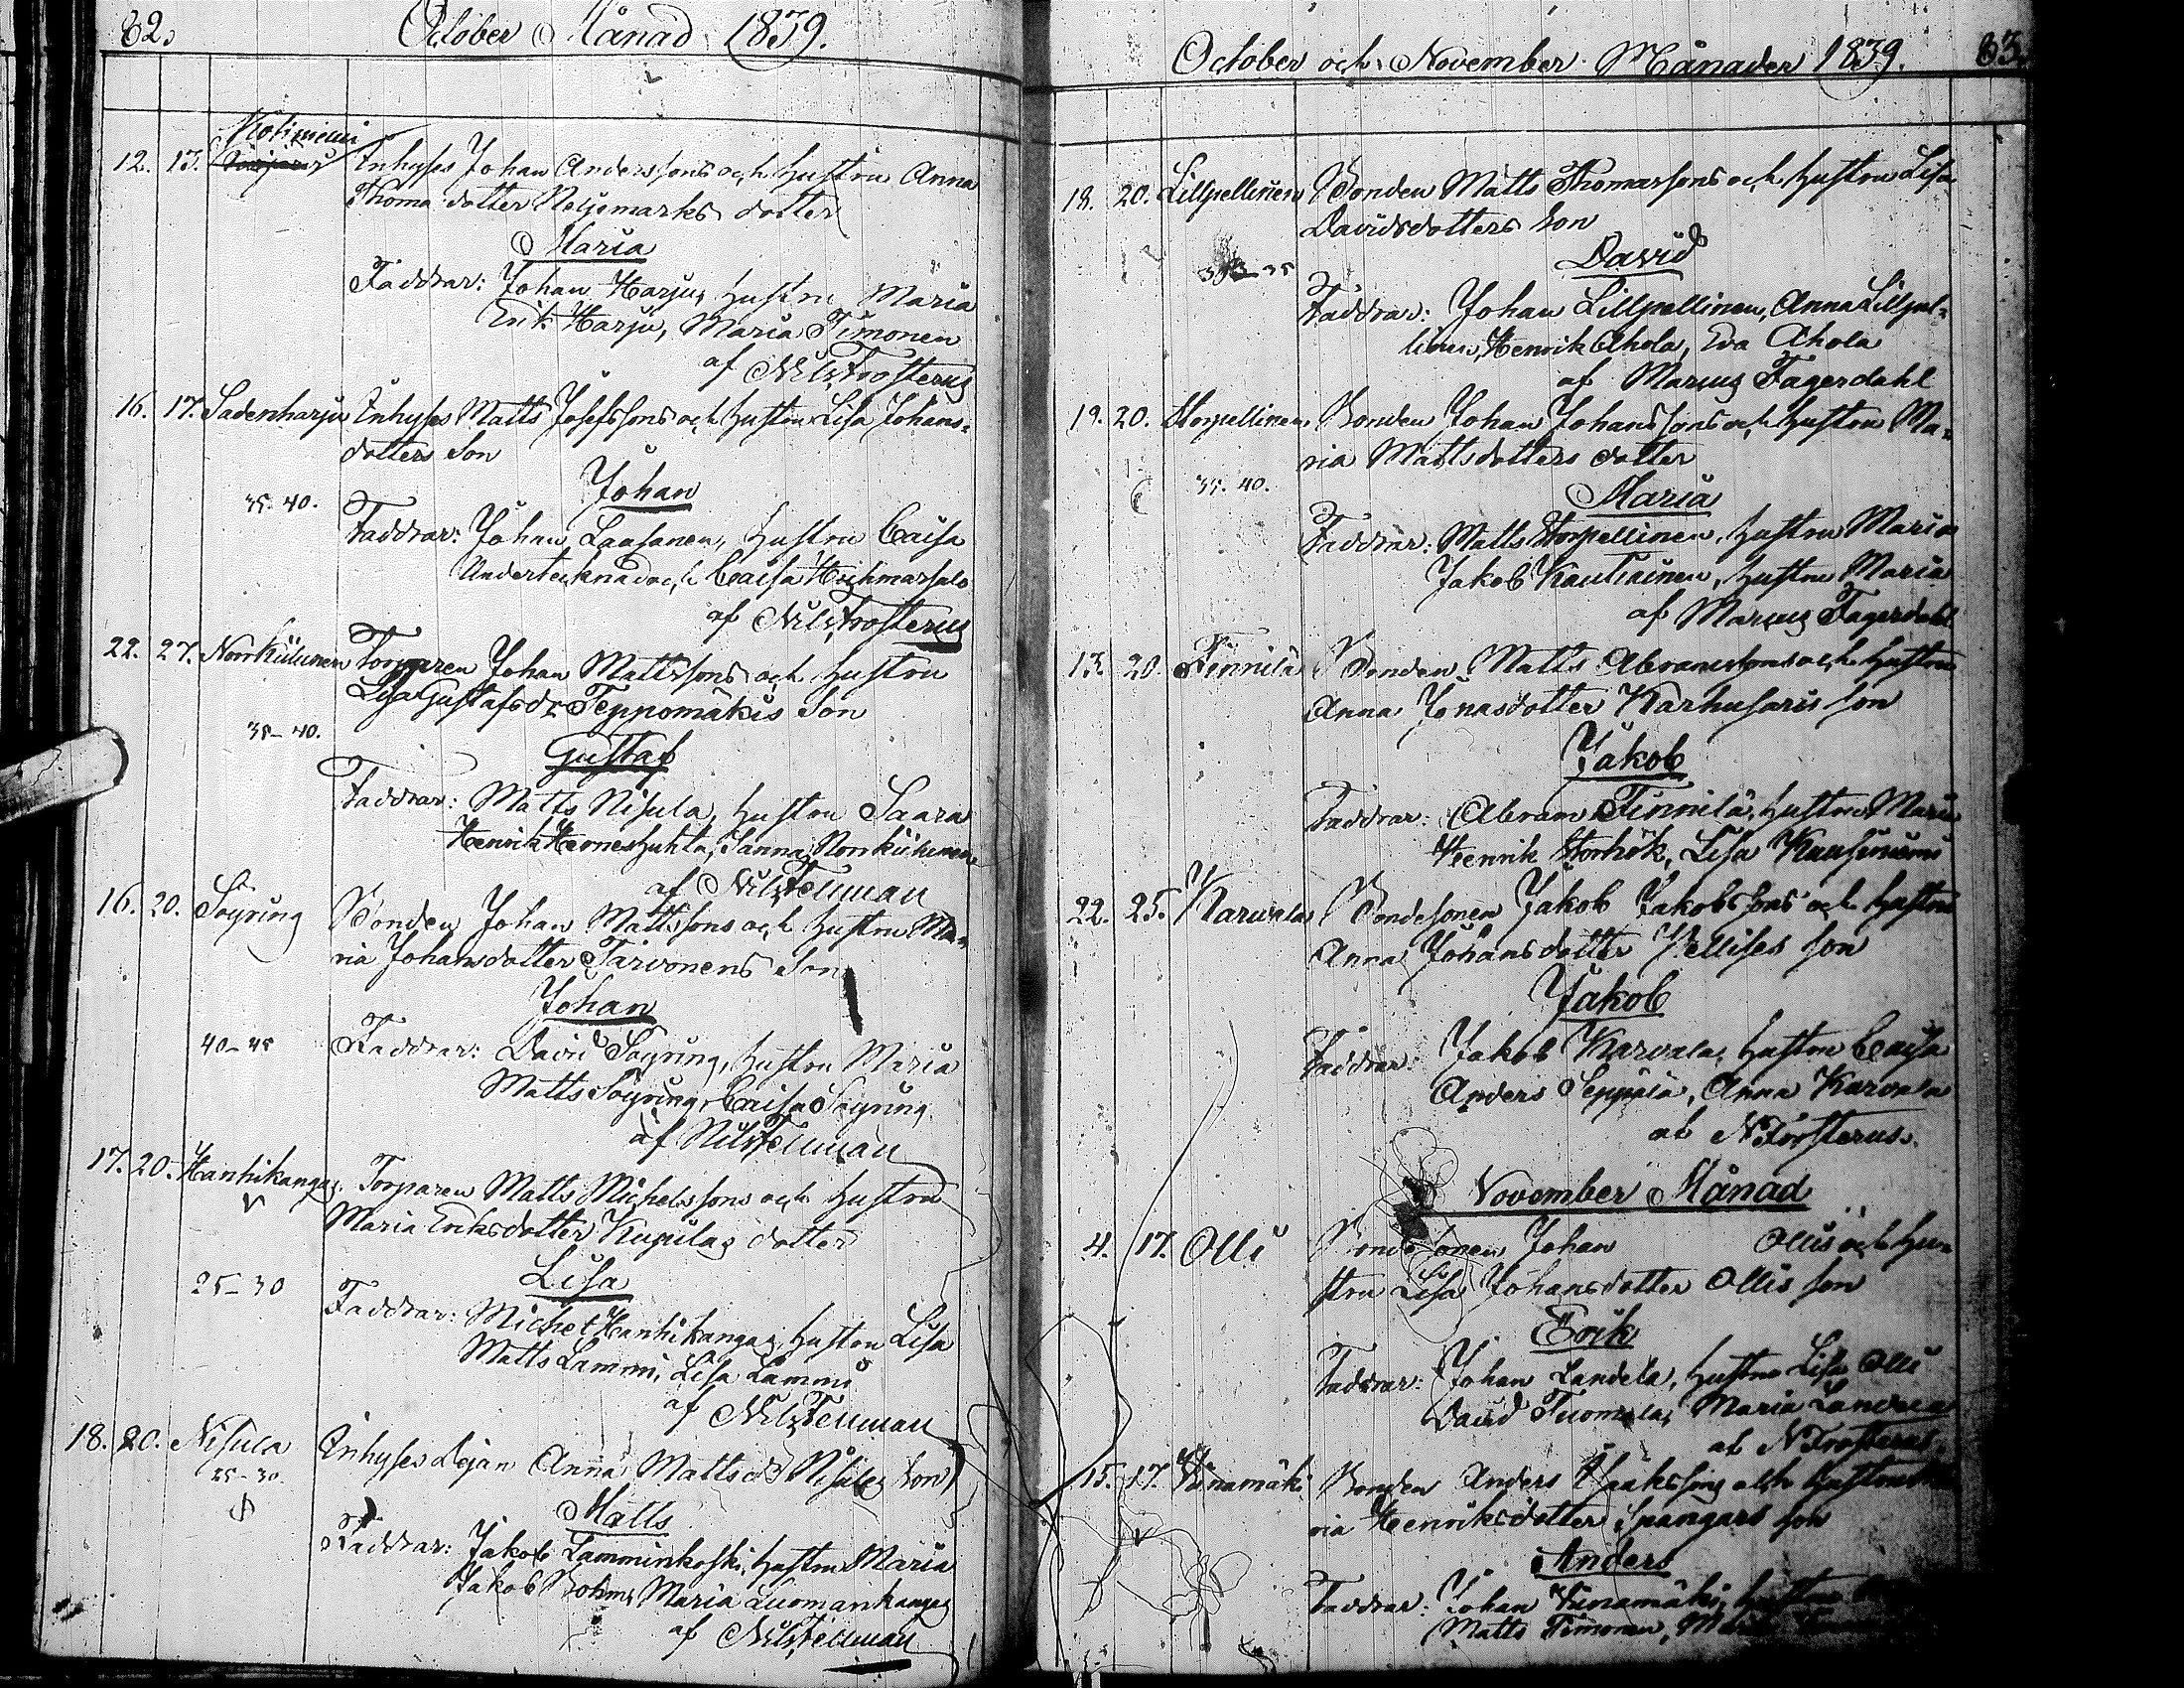 82.
October Månad 1839.
Kotiniemi
12. 13. Inhyses Johan Anderssons och hustru Anna
Thoma dotter Neljemarks dotter
Maria
Faddrar: Johan Harju, hustru Maria
Erik Harju, Maria Timonen
af Nils Frosterus
16. 17. Sadenharju Inhyses Matts Josefssons och hustru Lisa Johans-
dotters Son
Johan
35-40.
Faddrar: Johan Laasanen, hustru Caisa
Undertecknad och Caisa
af Nils Frosterus
22. 27. Norrkülunen Torparen Johan Mattssons och hustru
Lisa Gustafsdr Teppomäkis Son
35-40.
Gustaf
Faddrar: Matts Nisula, hustru Saara
Henrik Herneshuhta, Sanna Norrkülunen
af Nils Fellman
16. 20. Söyring Bonden Johan Mattssons och hustru Ma-
ria Johansdotter Tarvonens Son
Johan
40-45
Faddrar: David Söyring, hustru Maria
Matts Söyring, Caisa Söyring
af Nils Fellman
17. 20. Hanhikangas Torparen Matts Michelssons och hustru
Maria Eriksdotter Kujulas dotter
Lisa
25-30
Faddrar: Michel Hanhikangas, hustru Lisa
Matts Lammi, Lisa Lammi
af Nils Fellman
18. 20. Nisula Inhyses Pigan Anna Mattsdr Nisulas Son
25-30.
Matts
Faddrar: Jakob Lamminkoski, hustru Maria
Jakob Bohm, Maria Luomankangas
af Nils Fellman
October och November Månader 1839. 83.
18. 20. Lillpellinen Bonden Matts Thomassons och hustru Lisa
Davidsdotters Son
David
35
Faddrar: Johan Lillpellinen, Anna Lillpel-
linen, Henrik Ahola, Eva Ahola
af Marcus Fagerdahl
19. 20. Storpellinen Bonden Johan Johanssons och hustru Ma-
ria Mattsdotters dotter
35. 40.
Maria
Faddrar: Matts Storpellinen, hustru Maria
Jakob Kautiainen, hustru Maria
af Marcus Fagerdahl
13. 20. Finnilä Bonden Matts Abramssons och hustru
Anna Jonasdotter Karhusaris son
Jakob
Faddrar: Abram Finnilä, hustru Maria
Henrik Storhök, Lisa Kausiniemi
22. 25. Karvala Bondesonen Jakob Jakobssons och hustru
Anna Johansdotter Pellises son
Jakob
Faddrar: Jakob Karvala, hustru Caisa
Anders Seppälä, Anna Karvala
af N Frosterus.
November Månad
4. 17. Olli Bondesonen Johan Ollis och hu-
stru Lisa Johansdotter Ollis son
Erik
Faddrar: Johan Landela, hustru Lisa Olli
David Tuomela, Maria Landela
af N Frosterus.
15. 17. Viinamäki Bonden Anders Isaakssons och hustru Ma-
ria Henriksdotter Spangars son
Anders
Faddrar: Johan Viinamäki, hustru
Matts Timonen,